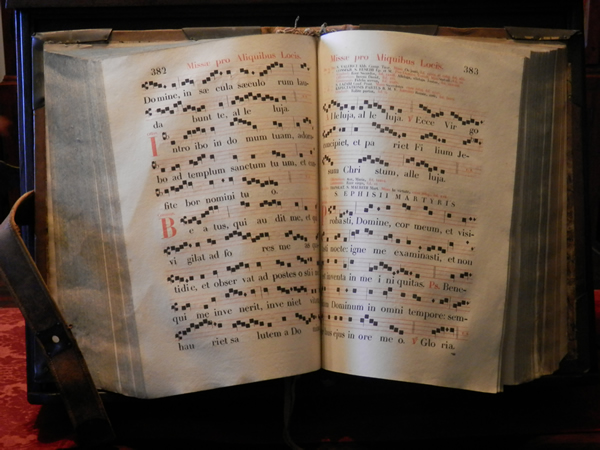 382
Missæ pro Aliquibus Locis.
Domine, in sæ cula sæculo rum lau-
da bunt te, al le luja.
Intro ibo in do mum tuam, adora-
bo ad templum sanctum tu um, et con
fite bor nomini tu o.
Be a tus, qui au dit me, et qui
vi gilat ad fo res me as
tidi e, et obser vat ad postes o sti
qui me inve nerit, inve niet vitam
hau riet sa lutem a Do
Missæ pro Aliquibus Locis.
383
Alleluja, al le luja. ℣ Ecce Vir go
concipiet, et pa riet Fi lium Je-
sum Chri stum, alle luja.
S. EPHISII MARTYRIS
Probasti, Domine, cor meum, et visi-
sti nocte: igne me examinasti, et non
est inventa in me i ni quitas. Ps. Bene-
dicam Dominum in omni tempore: sem-
laus ejus in ore me o. ℣ Glo ria.